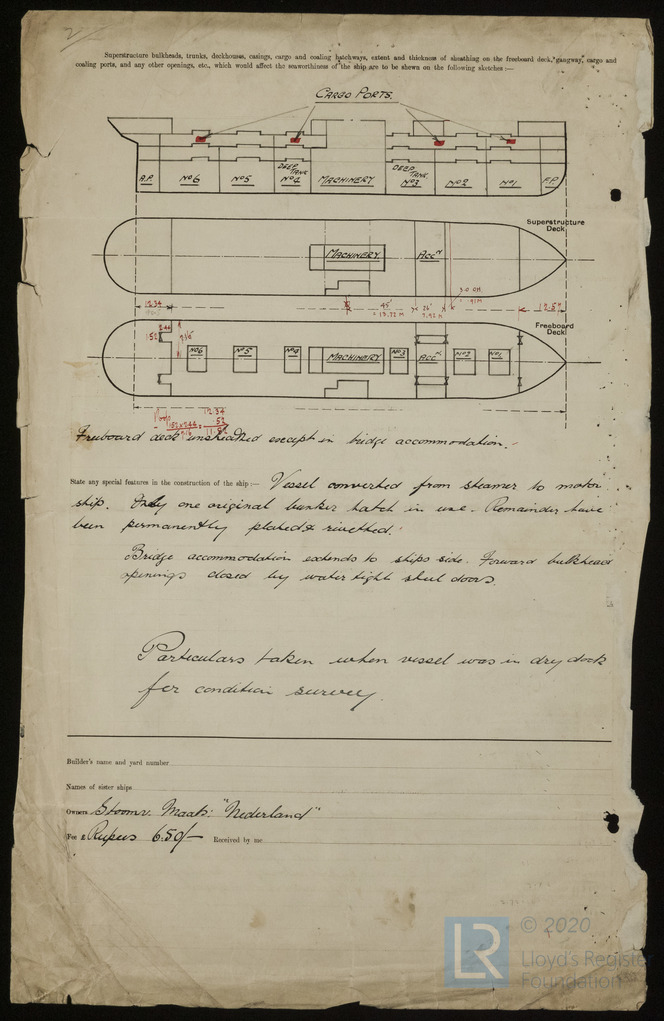 2
Superstructure bulkheads, trunks, deckhouses, casings, cargo and coaling hatchways, extent and thickness of sheathing on the freeboard deck, gangway, cargo and
coaling ports, and any other openings, etc., which would affect the seaworthiness of the ship are to be shewn on the following sketches:—
CARGO PORTS.
A.P. No 6 No 5 DEEP TANK No 4 MACHINERY DEEP TANK No 3 No 2 No 1 F.P.
Superstructure
Deck
MACHINERY ACCN
3.0 OH.
= .91 M
12.34 45' 26' 12.57
= 13.72 M 7.92 M
Freeboard
Deck
2.44
1.52
No 6 No 5 No 4 MACHINERY No 3 ACCN No 2 No 1
Poop 12.34
1.52 x 2.44 .52
11.82
Freeboard deck unsheathed except in bridge accommodation.
State any special features in the construction of the ship:— Vessel converted from steamer to motor
ship. Only one original bunker hatch in use. Remainder have
been permanently plated & rivetted.
Bridge accommodation extends to ships side. Forward bulkhead
openings closed by water tight steel doors.
Particulars taken when vessel was in dry dock
for condition survey.
Builder's name and yard number
Names of sister ships
Owners Stoomv. Maats: "Nederland"
Fee £ Rupees 650/- Received by me
LR
© 2020
Lloyd's Register
Foundation